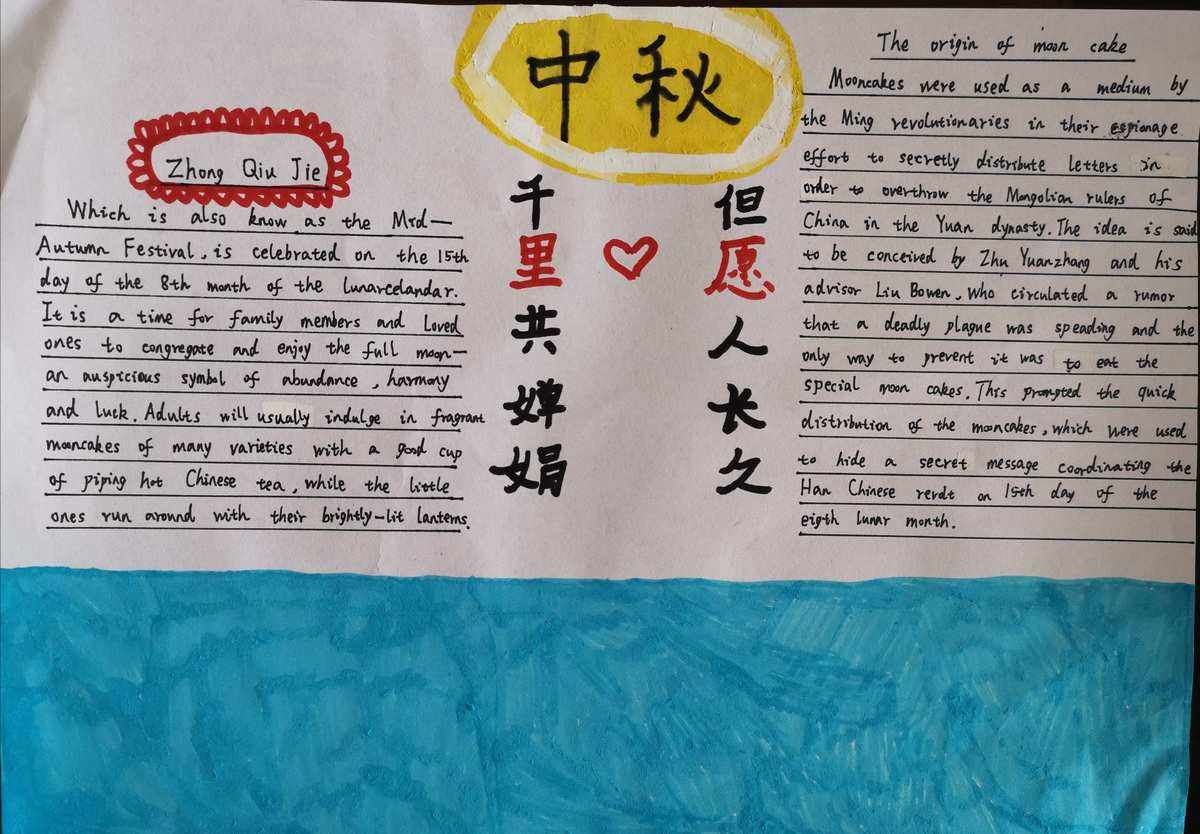 中秋
Zhong Qiu Jie
Which is also know as the Mid-
Autumn Festival, is celebrated on the 15th
day of the 8th month of the lunarcelandar.
It is a time for family members and loved
ones to congregate and enjoy the full moon-
an auspicious symbol of abundance, harmony
and luck. Adults will usually indulge in fragrant
mooncakes of many varieties with a good cup
of piping hot Chinese tea, while the little
ones run around with their brightly-lit lanterns.
但愿人长久
千里共婵娟
The origin of moon cake
Mooncakes were used as a medium by
the Ming revolutionaries in their espionage
effort to secretly distribute letters in
order to overthrow the Mongolian rulers of
China in the Yuan dynasty. The idea is said
to be conceived by Zhu Yuanzhang and his
advisor Liu Bowen, who circulated a rumor
that a deadly plagne was speading and the
only way to prevent it was to eat the
special moon cakes. This prompted the quick
distribution of the mooncakes, which were used
to hide a secret message coordinating the
Han Chinese revolt on 15th day of the
eigth lunar month.